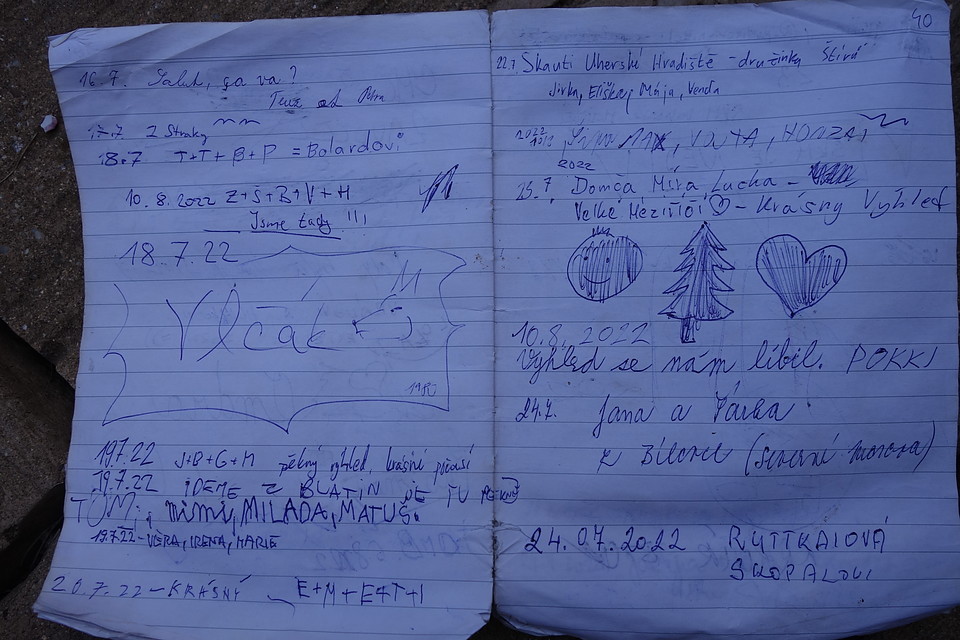 16.7. Salut, ça va?
17.7 2 Straky
18.7 T+T+B+P = Bolardovi
10.8.2022 Z+S+B+V+H
Jsme tady !!!
18.7.22
Vlčák
19.7.22 J+B+G+M pěkný výhled, krásné počasí
19.7.22 IDEME Z BLATIN JE TU PEKNE
TOM, mimi, MILADA, MATUŠ.
19.7.22 - VĚRA, IRENA, MARIE
20.7.22 - KRÁSNÝ E+M+E+T+I
40
22.7. Skauti Uherské Hradiště - družinka Štírů
Jirka, Eliška, Mája, Venda
2022
VOJTA, HONZA,
2022
25.7 Domča Míra Lucka -
Velké Meziříčí - Krásný Výhled
10.8.2022
Výhled se nám líbil. POKKI
24.7. Jana a Šárka
z Bílovic (severní morava)
24.07.2022 RUTTKAIOVÁ
SKOPALOVI